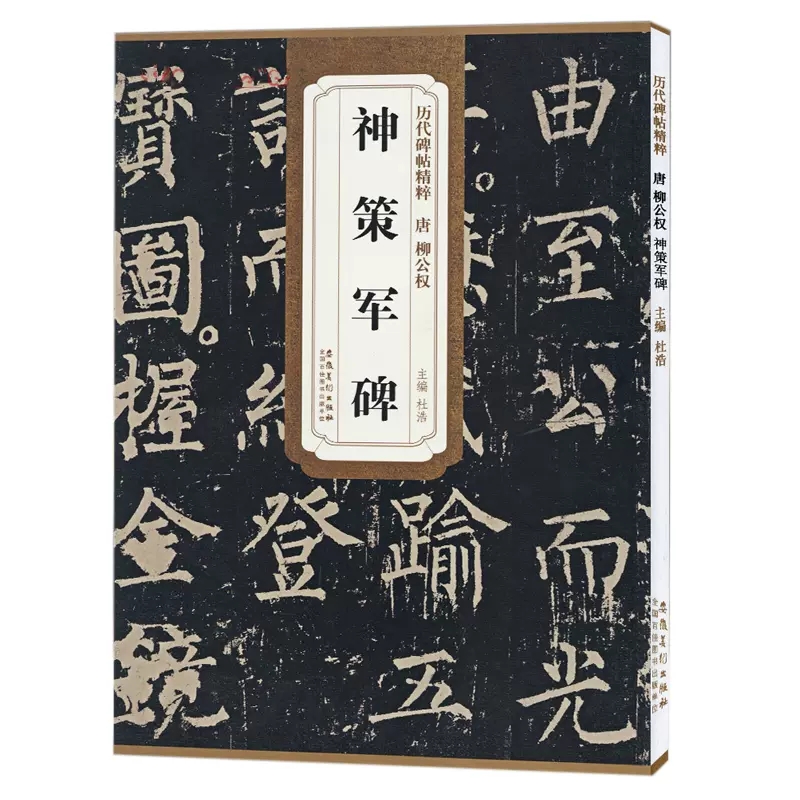 历代碑帖精粹 唐 柳公权
神策军碑
主编 杜浩
安徽美术出版社
全国百佳图书出版单位
由至公而光
踰五
登
寶圖握金鏡
历代碑帖精粹 唐 柳公权 神策军碑 主编 杜浩
安徽美术出版社
全国百佳图书出版单位